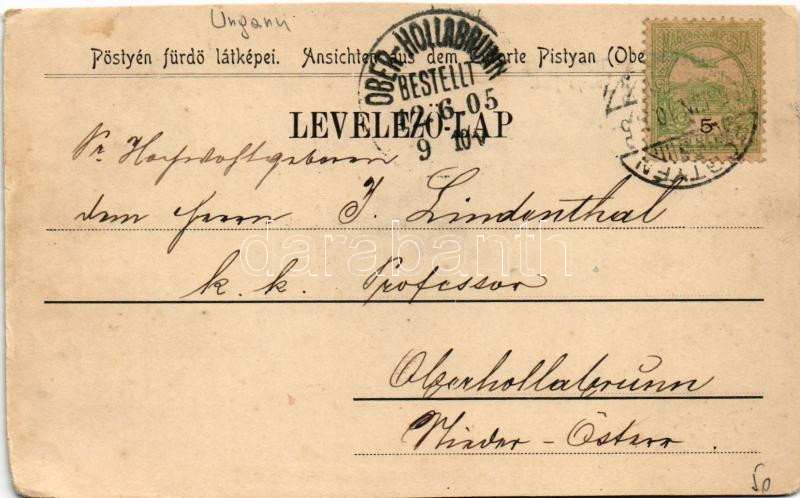 Ungarn
Pöstyén fürdő látképei. Ansichten aus dem Curorte Pistyan (Ober
OBER-HOLLABRUNN
BESTELLT
12 6 05
9 10V
LEVELEZŐ-LAP
MAGYAR POSTA
5
PÖSTYÉN
Sr. Hochwohlgeboren
dem Herrn J. Lindenthal
darabanth
k. k. Professor
Oberhollabrunn
Nieder-Österr.
50